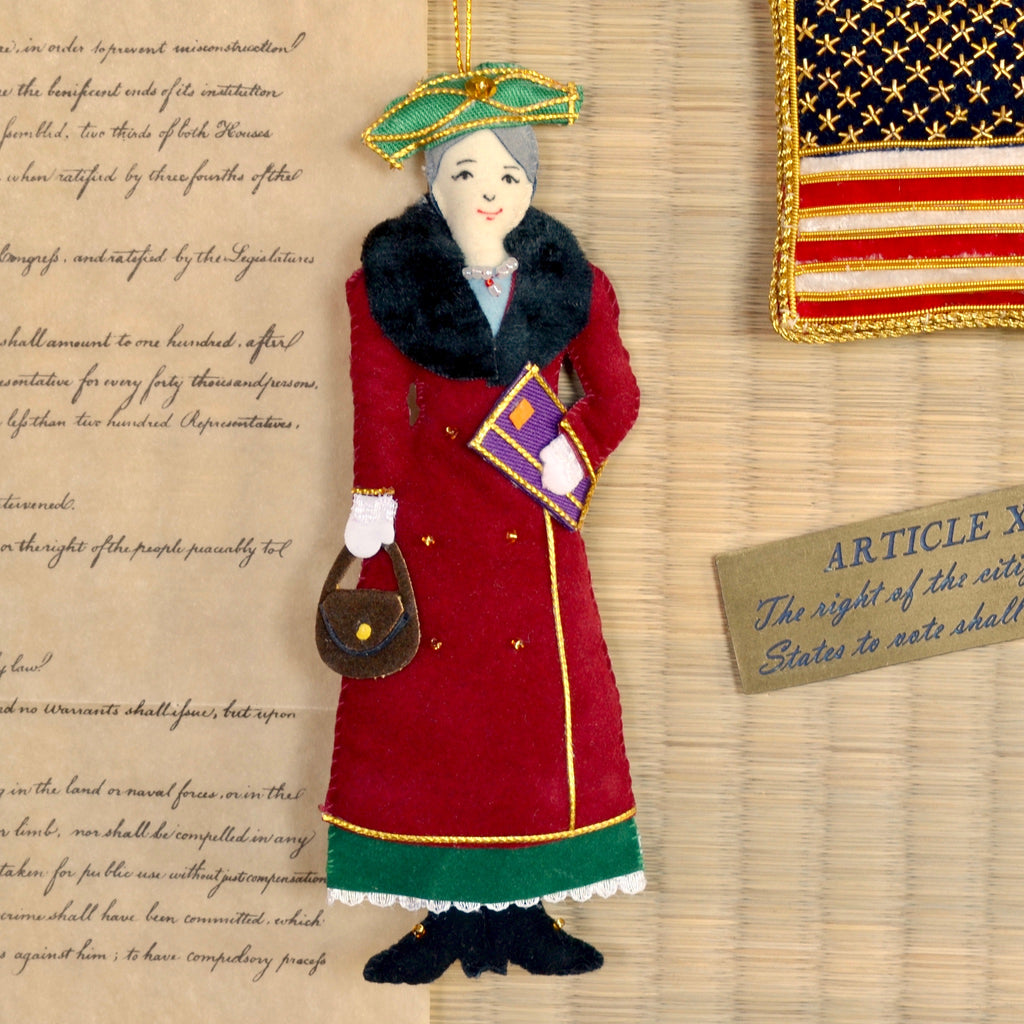 in order to prevent misconstruction
the beneficent ends of its institution
ssembled, two thirds of both Houses
when ratified by three fourths of the
Congress, and ratified by the Legislatures
shall amount to one hundred, after
esentative for every forty thousand persons,
less than two hundred Representatives,
tervened.
or the right of the people peaceably to
y law
nd no Warrants shall issue, but upon
g in the land or naval forces, or in the
r limb, nor shall be compelled in any
taken for public use without just compensation
crime shall have been committed, which
s against him; to have compulsory process
ARTICLE X
The right of the citi
States to vote shall